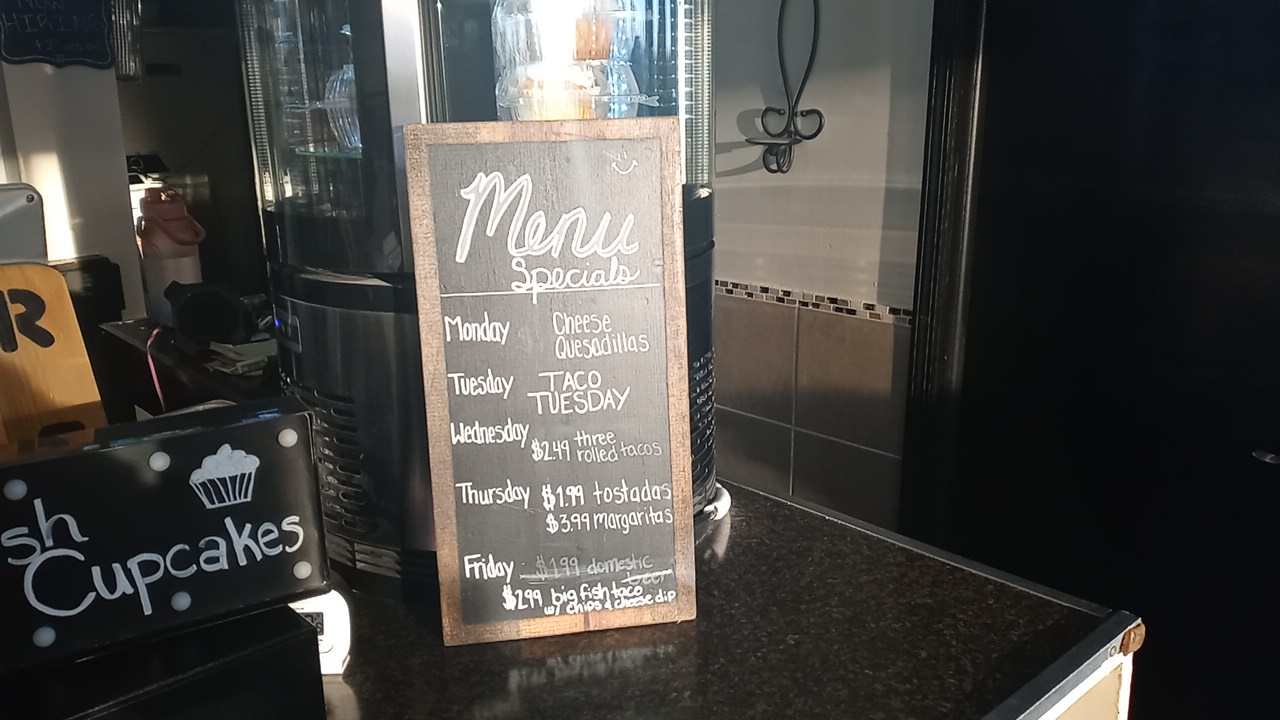 NOW
HIRING
R
sh
Cupcakes
Menu
Specials
Monday Cheese
Quesadillas
Tuesday TACO
TUESDAY
Wednesday $2.49 three
rolled tacos
Thursday $1.99 tostadas
$3.99 margaritas
Friday $1.99 domestic
beer
$2.99 big fish taco
w/ chips & cheese dip